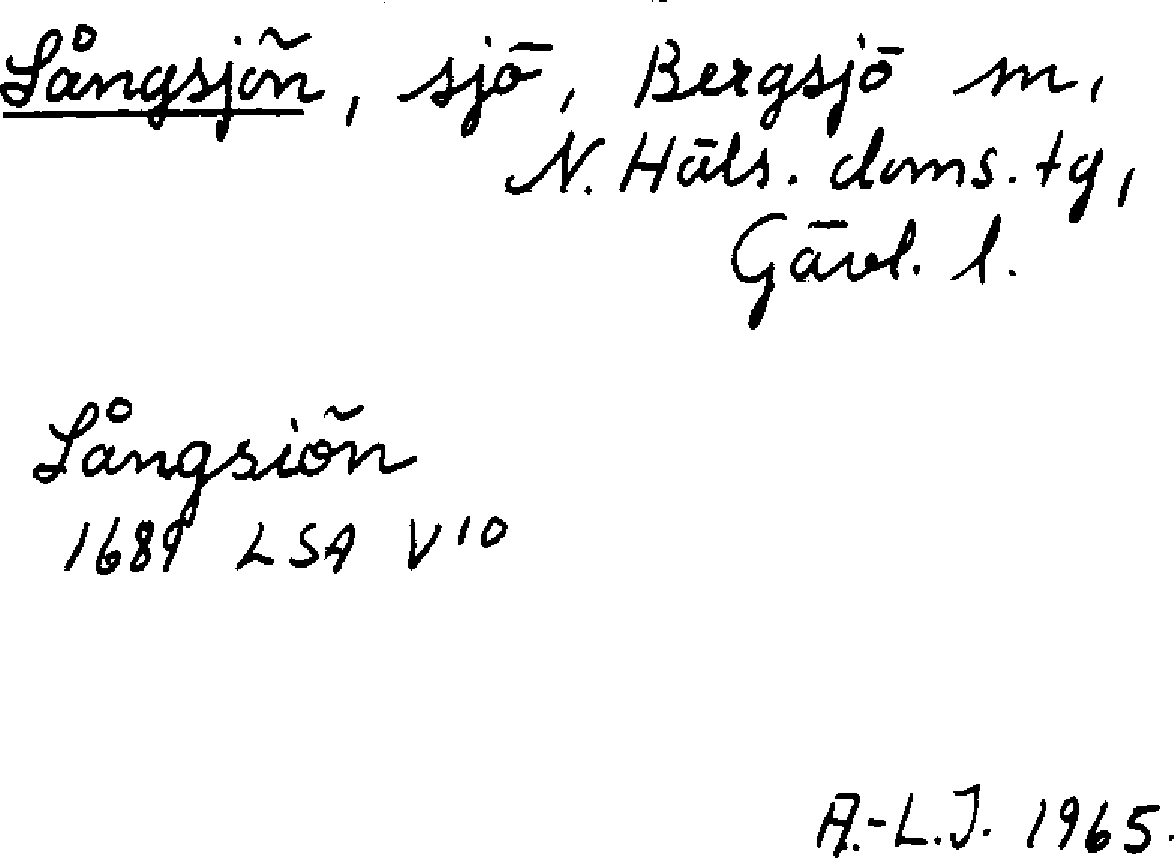 Långsjön, sjö, Bergsjö sn,
N. Häls. doms. tg,
Gävl. l.
Långsiön
1689 LSA V10
A.-L.J. 1965.